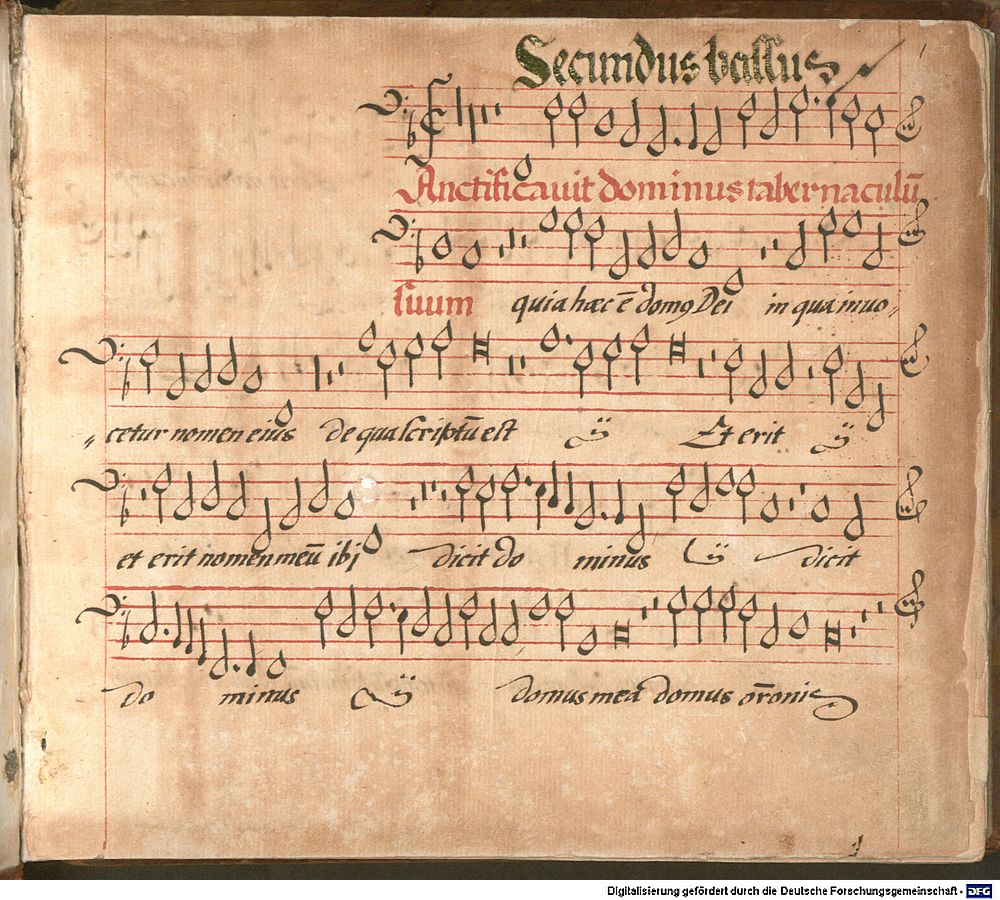 Secundus bassus
1
Anctificavit dominus tabernaculũ
suum quia hæc ẽ domꝰ Dei in qua inuo„
„cetur nomen eius de qua scriptũ est ÿ Et erit ÿ
et erit nomen meũ ibi dicit do minus ÿ dicit
do minus ÿ domus mea domus or̃onis
Digitalisierung gefördert durch die Deutsche Forschungsgemeinschaft - DFG